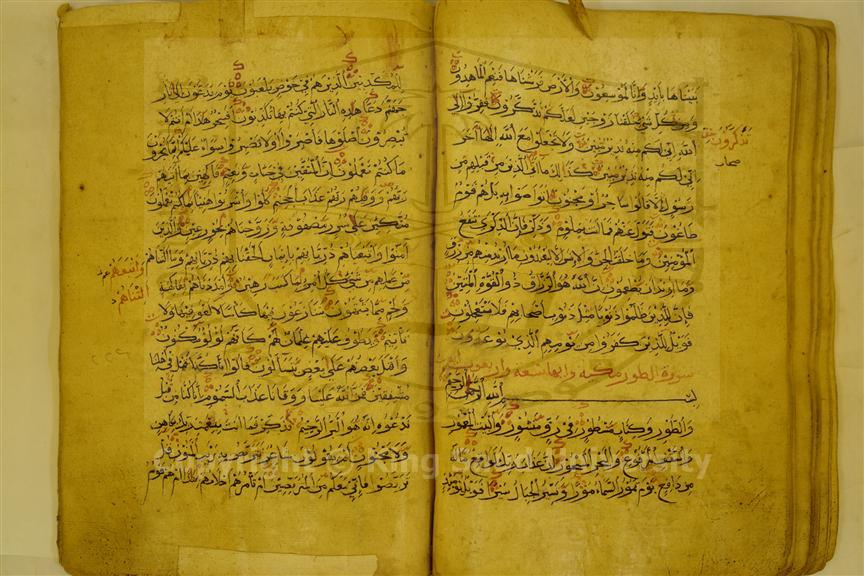 بنيناها بأيد وإنا لموسعون والأرض فرشناها فنعم الماهدون
ومن كل شيء خلقنا زوجين لعلكم تذكرون ففروا إلى
الله إني لكم منه نذير مبين ولا تجعلوا مع الله إلها آخر
إني لكم منه نذير مبين كذلك ما أتى الذين من قبلهم من
رسول إلا قالوا ساحر أو مجنون أتواصوا به بل هم قوم
طاغون فتول عنهم فما أنت بملوم وذكر فإن الذكرى تنفع
المؤمنين وما خلقت الجن والإنس إلا ليعبدون ما أريد منهم من رزق
وما أريد أن يطعمون إن الله هو الرزاق ذو القوة المتين
فإن للذين ظلموا ذنوبا مثل ذنوب أصحابهم فلا يستعجلون
فويل للذين كفروا من يومهم الذي يوعدون
سورة الطور مكية وآيها تسعة وأربعون
بسم الله الرحمن الرحيم
والطور وكتاب مسطور في رق منشور والبيت المعمور
والسقف المرفوع والبحر المسجور إن عذاب ربك لواقع ما له
من دافع يوم تمور السماء مورا وتسير الجبال سيرا فويل يومئذ
تذكرون
صحاب
للمكذبين الذين هم في خوض يلعبون يوم يدعون إلى نار
جهنم دعا هذه النار التي كنتم بها تكذبون أفسحر هذا أم أنتم لا
تبصرون اصلوها فاصبروا أو لا تصبروا سواء عليكم إنما تجزون
ما كنتم تعملون إن المتقين في جنات ونعيم فاكهين بما آتاهم
ربهم ووقاهم ربهم عذاب الجحيم كلوا واشربوا هنيئا بما كنتم تعملون
متكئين على سرر مصفوفة وزوجناهم بحور عين والذين
آمنوا وأتبعناهم ذرياتهم بإيمان ألحقنا بهم ذرياتهم وما ألتناهم
من عملهم من شيء كل امرئ بما كسب رهين وأمددناهم بفاكهة
ولحم مما يشتهون يتنازعون فيها كأسا لا لغو فيها ولا
تأثيم ويطوف عليهم غلمان لهم كأنهم لؤلؤ مكنون
وأقبل بعضهم على بعض يتساءلون قالوا إنا كنا قبل في أهلنا
مشفقين فمن الله علينا ووقانا عذاب السموم إنا كنا من قبل
ندعوه إنه هو البر الرحيم فذكر فما أنت بنعمة ربك بكاهن
ولا مجنون أم يقولون شاعر نتربص به ريب المنون قل
تربصوا فإني معكم من المتربصين أم تأمرهم أحلامهم بهذا أم هم قوم
وأتبعناهم
ألتناهم
Copyright © King Saud University